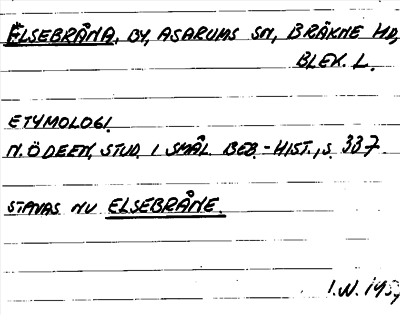 ELSEBRÅNA, BY, ASARUMS SN, BRÄKNE HD,
BLEK. L.
ETYMOLOGI.
N. ÖDEEN, STUD. I SMÅL. BEB.-HIST., S. 337.
STAVAS NU ELSEBRÅNE.
I.W.